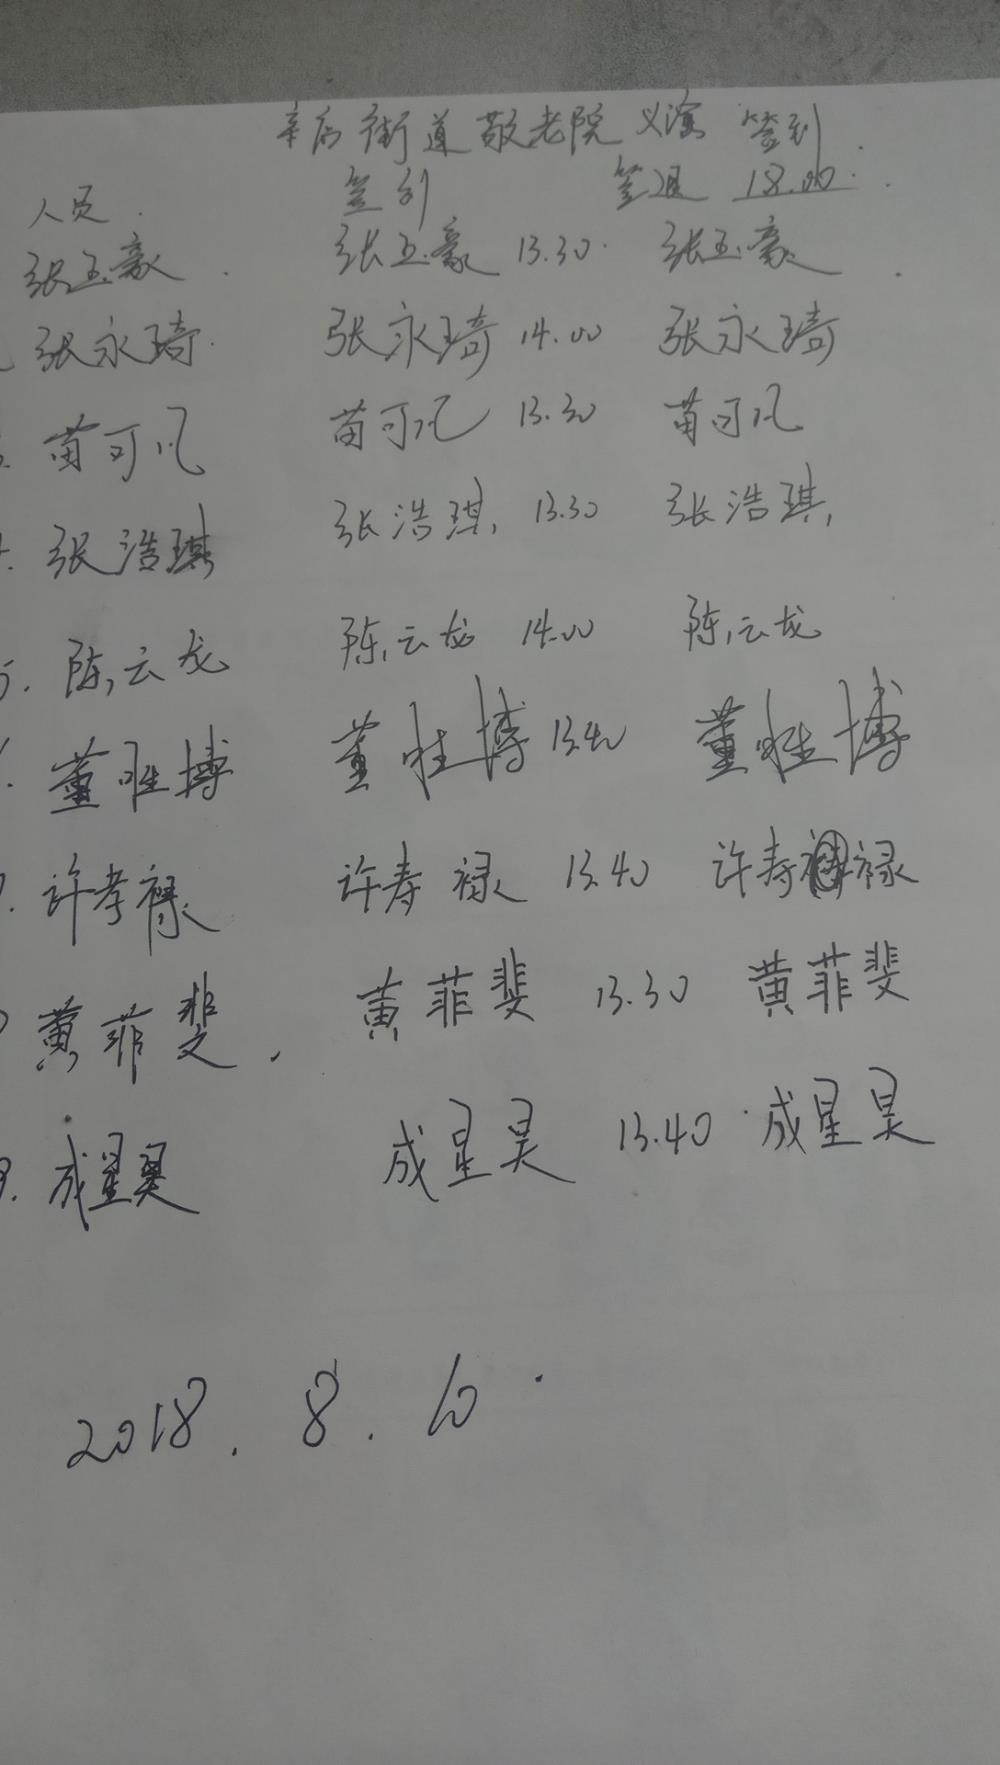 辛店街道敬老院义演 签到
人员. 签到 签退 18.00.
张玉豪. 张玉豪 13.30. 张玉豪
张永琦. 张永琦 14.00 张永琦
苗可凡 苗可凡 13.30 苗可凡
张浩琪 张浩琪, 13.30 张浩琪,
5. 陈云龙 陈云龙 14.00 陈云龙
董唯博 董唯博 13.40 董唯博
许孝禄 许寿禄 13.40 许寿禄
黄菲斐, 黄菲斐 13.30 黄菲斐
9. 成星昊 成星昊 13.40 成星昊
2018. 8. 10.